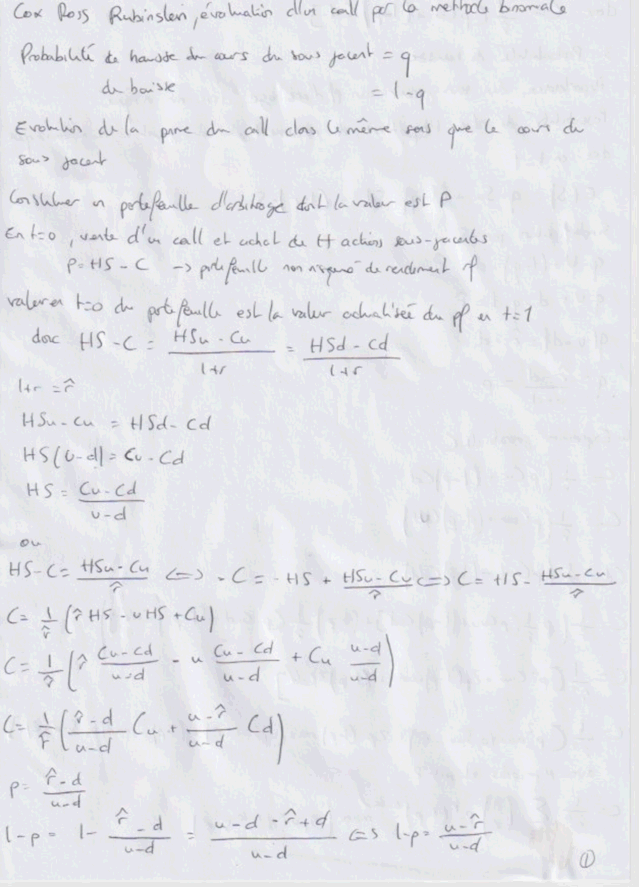 Cox Ross Rubinstein, évaluation d'un call par la méthode binomiale
Probabilité de hausse du cours du sous jacent = q
du baisse = 1-q
Evolution de la prime du call dans le même sens que le cours du
sous jacent
Constituer un portefeuille d'arbitrage dont la valeur est P
En t=0, vente d'un call et achat de H actions sous-jacentes
P = HS - C → portefeuille non risqué de rendement rf
valeur en t=0 du portefeuille est la valeur actualisée du pf en t=1
donc HS - C = (HSu - Cu)/(1+r) = (HSd - Cd)/(1+r)
1+r = r̂
HSu - Cu = HSd - Cd
HS(u-d) = Cu - Cd
HS = (Cu - Cd)/(u-d)
ou
HS - C = (HSu - Cu)/r̂ <=> -C = -HS + (HSu - Cu)/r̂ <=> C = HS - (HSu - Cu)/r̂
C = 1/r̂ (r̂HS - uHS + Cu)
C = 1/r̂ (r̂ (Cu-Cd)/(u-d) - u (Cu-Cd)/(u-d) + Cu (u-d)/(u-d))
C = 1/r̂ ((r̂-d)/(u-d) Cu + (u-r̂)/(u-d) Cd)
p = (r̂-d)/(u-d)
1-p = 1 - (r̂-d)/(u-d) = (u-d-r̂+d)/(u-d) <=> 1-p = (u-r̂)/(u-d)
①